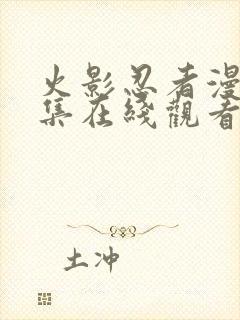 火影忍者漫
集在綫觀看
土冲